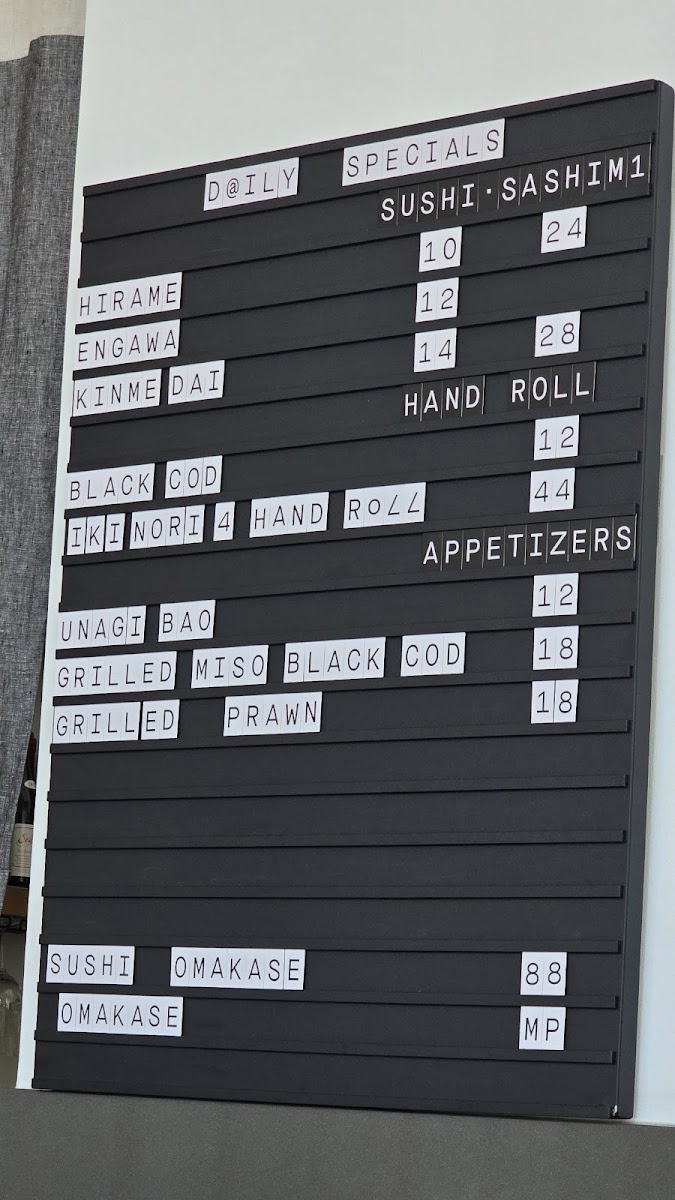 D@ILY SPECIALS
SUSHI·SASHIM1
HIRAME 10 24
ENGAWA 12
KINME DAI 14 28
HAND ROLL
BLACK COD 12
IKI NORI 4 HAND ROLL 44
APPETIZERS
UNAGI BAO 12
GRILLED MISO BLACK COD 18
GRILLED PRAWN 18
SUSHI OMAKASE 88
OMAKASE MP